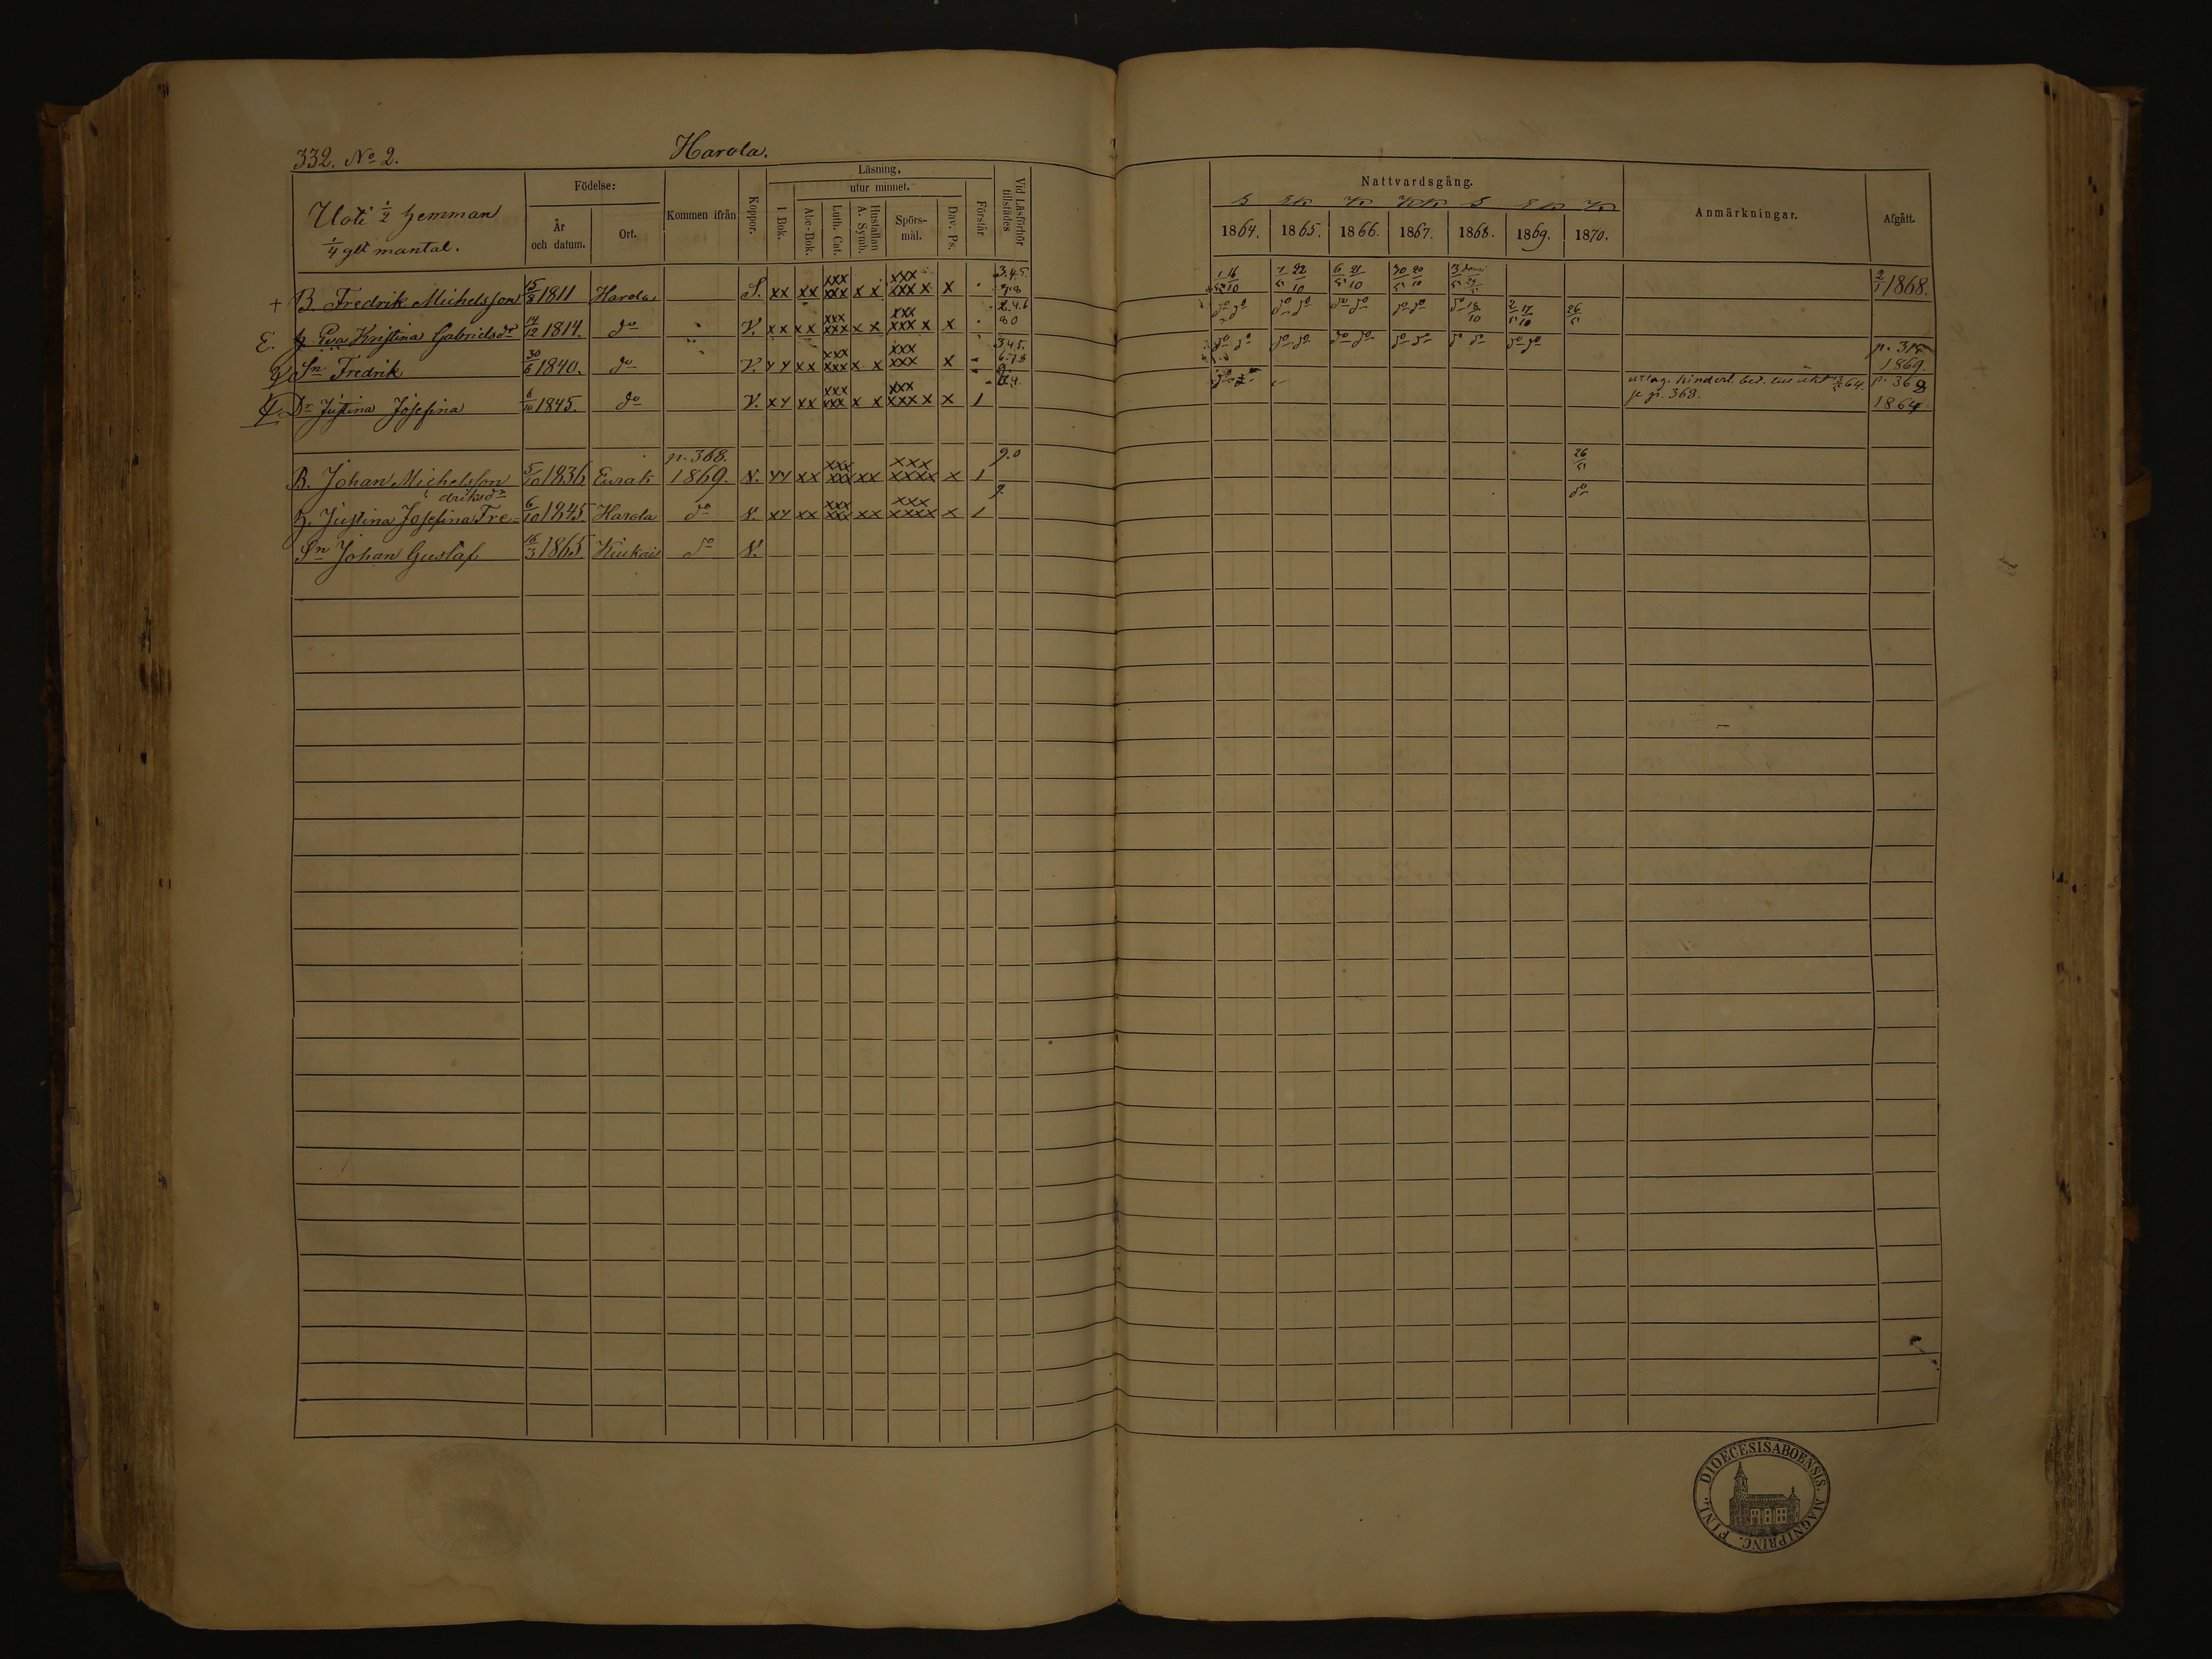 332. No 2.
Harola.
Uoti ½ hemman
¼ gll mantal.
Födelse:
År och datum.
Ort.
Kommen ifrån
Koppor.
Läsning,
utur minnet.
I Bok.
Abc-Bok.
Luth. Cat.
Hustaflan A. Symb.
Spörs-mål.
Dav. Ps.
Förstår
Vid Läsförhör tillstädes
Nattvardsgång.
1864. 1865. 1866. 1867. 1868. 1869. 1870.
Anmärkningar.
Afgått.
+ B. Fredrik Michelsson 1811 Harola S. xx xx xxx xxx x x xxx xxx x x 3.4.5. 1/5 16/10 7/5 22/10 6/5 21/10 30/5 20/10 2/1 1868.
E. Eva Kristina Gabrielsdr 14/12 1814. do V. xx xx xxx xxx x x xxx xxx x x 2.4.6 80 do do do do do do do do do 18/10 2/5 17/10 26/5
Sn Fredrik 30/6 1840. do V. xx xx xxx xxx x x xxx xxx x 3.4.5. 6.7.8 do do do do do do do do do do do do 1869.
Dr Justina Josefina 6/10 1845. do V. xx xx xxx xxx x x xxx xxx x x 1 p. 368. 1864
B. Johan Michelsson 5/10 1836 Eura k p. 368. 1869. V. xx xx xxx xxx xx xxx xxxx x 1 9.0 26/5
h. Justina Josefina Fredriksdr 6/10 1845. Harola do V. xx xx xxx xxx xx xxx xxxx x 1 9. do
Sn Johan Gustaf 16/3 1865. Kiukais do V.
FINL. DIOECESIS ABOENSIS. MAGNI PRINC.